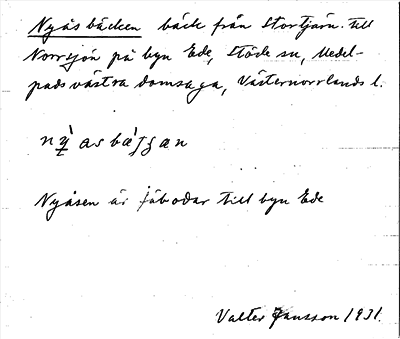 Nyåsbäcken bäck från Stortjärn. till
Norrsjön på byn Ede, Stöde sn, Medel-
pads västra domsaga, Västernorrlands l.
Nyåsen är fäbodar till byn Ede
Valter Jansson 1931.